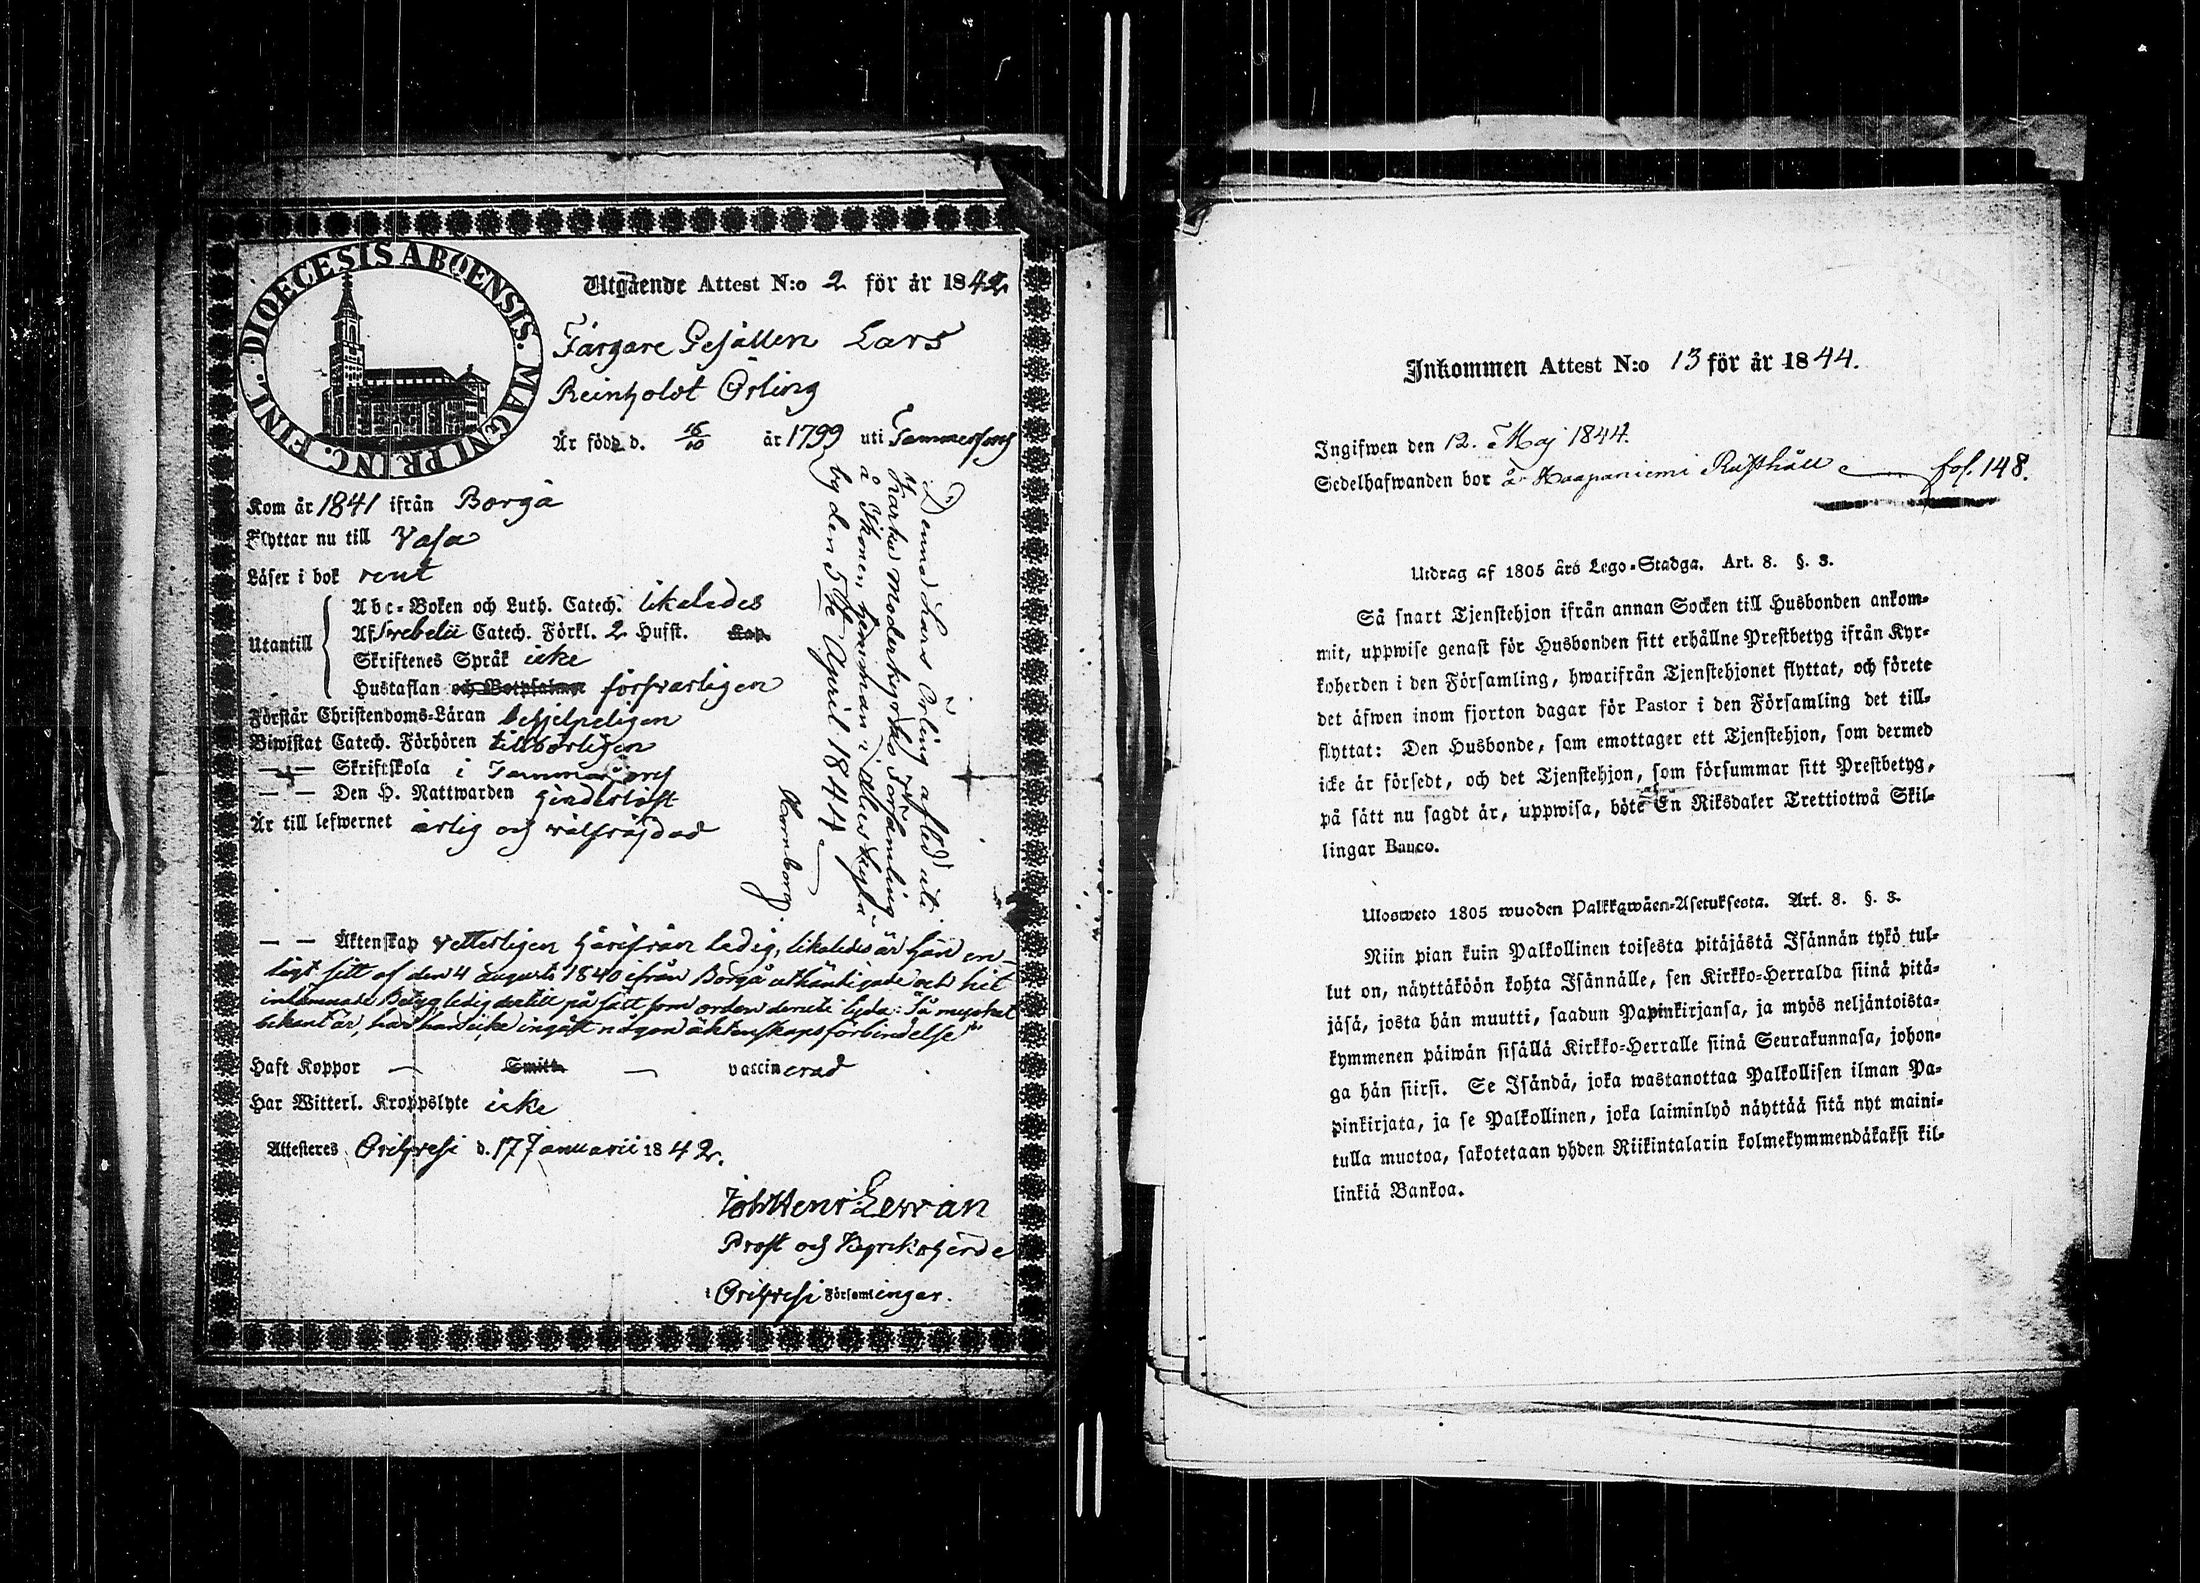 DIOECESIS ABOENSIS. MAGNI PRINC. FINL.
Utgående Attest N:o 2 för år 1842
Färgare Gesällen Lars
Reinholdt Örling
Är född d. 16/10 år 1799 uti Tammerfors
Kom år 1841 ifrån Borgå
Flyttar nu till Vasa
Läser i bok rent
Utantill
Abc-Boken och Luth. Catech. likaledes
Af Svebelii Catech. Förkl. 2 Hufst. Kap.
Skriftenes Språk icke
Hustaflan och Botpsalmen försvarligen
Förstår Christendoms-Läran behjelpeligen
Biwistat Catech. Förhören tillbörligen
— — Skriftskola i Tammerfors
— — Den H. Nattwarden hinderlöst
Är till lefwernet ärlig och välfräjdad
— — Äktenskap vetterligen härifrån ledig, likaledes är han en-
ligt sitt af den 4 augusti 1840 ifrån Borgå uthändigade och hit
inlemnade Betyg ledig dertill på sätt som orden deruti lyda: "Så mycket
bekant är, har han icke ingått någon äktenskapsförbindelse"
Haft Koppor — Smitt. — vaccinerad
Har Witterl. Kroppslyte icke
Attesteres Orihvesi d. 17 Januarii 1842.
Joh Henr Levvan
Prost och Kyrkoherde
i Orihvesi Församlingar.
Denne Lars Örling afled uti
Karku Moderkyrko Församling
å Ikonen hemman i
by den 5te April 1844.
Inkommen Attest N:o 13 för år 1844.
Ingifwen den 12. Maj 1844.
Sedelhafwanden bor å Haapaniemi Rusthåll — fol. 148.
Utdrag af 1805 års Lego-Stadga. Art. 8. §. 3.
Så snart Tjenstehjon ifrån annan Socken till Husbonden ankom-
mit, uppwise genast för Husbonden sitt erhållne Prestbetyg ifrån Kyr-
koherden i den Församling, hwarifrån Tjenstehjonet flyttat, och förete
det äfwen inom fjorton dagar för Pastor i den Församling det till-
flyttat: Den Husbonde, som emottager ett Tjenstehjon, som dermed
icke är försedt, och det Tjenstehjon, som försummar sitt Prestbetyg,
på sätt nu sagdt är, uppwisa, böte En Riksdaler Trettiotwå Skil-
lingar Banco.
Ulosweto 1805 wuoden Palkkawäen-Asetuksesta. Art. 8. §. 3.
Niin pian kuin Palkollinen toisesta pitäjästä Isännän tykö tul-
lut on, näyttäköön kohta Isännälle, sen Kirkko-Herralda siinä pitä-
jäsä, josta hän muutti, saadun Papinkirjansa, ja myös neljäntoista-
kymmenen päiwän sisällä Kirkko-Herralle siinä Seurakunnasa, johon-
ga hän siirsi. Se Isändä, joka wastanottaa Palkollisen ilman Pa-
pinkirjata, ja se Palkollinen, joka laiminlyö näyttää sitä nyt maini-
tulla muotoa, sakotetaan yhden Riikintalarin kolmekymmendäkaksi kil-
linkiä Bankoa.